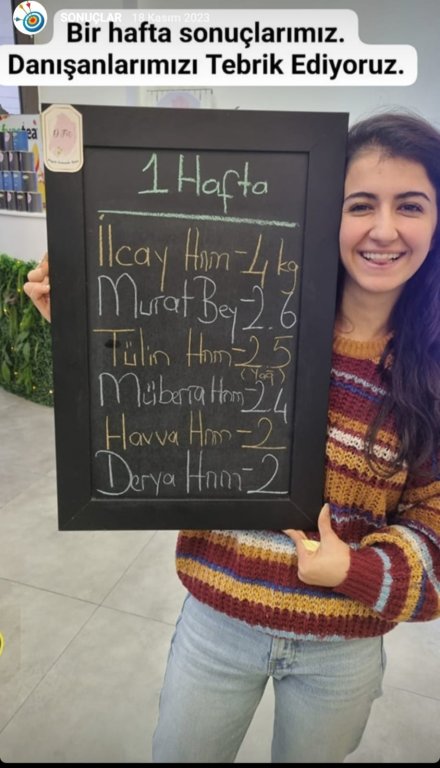 SONUÇLAR 18 Kasım 2023
Bir hafta sonuçlarımız.
Danışanlarımızı Tebrik Ediyoruz.
1 Hafta
İlcay Hnm - 4 kg
Murat Bey - 2.6
Tülin Hnm - 2.5
(Yağ)
Müberra Hnm - 2.4
Havva Hnm - 2
Derya Hnm - 2